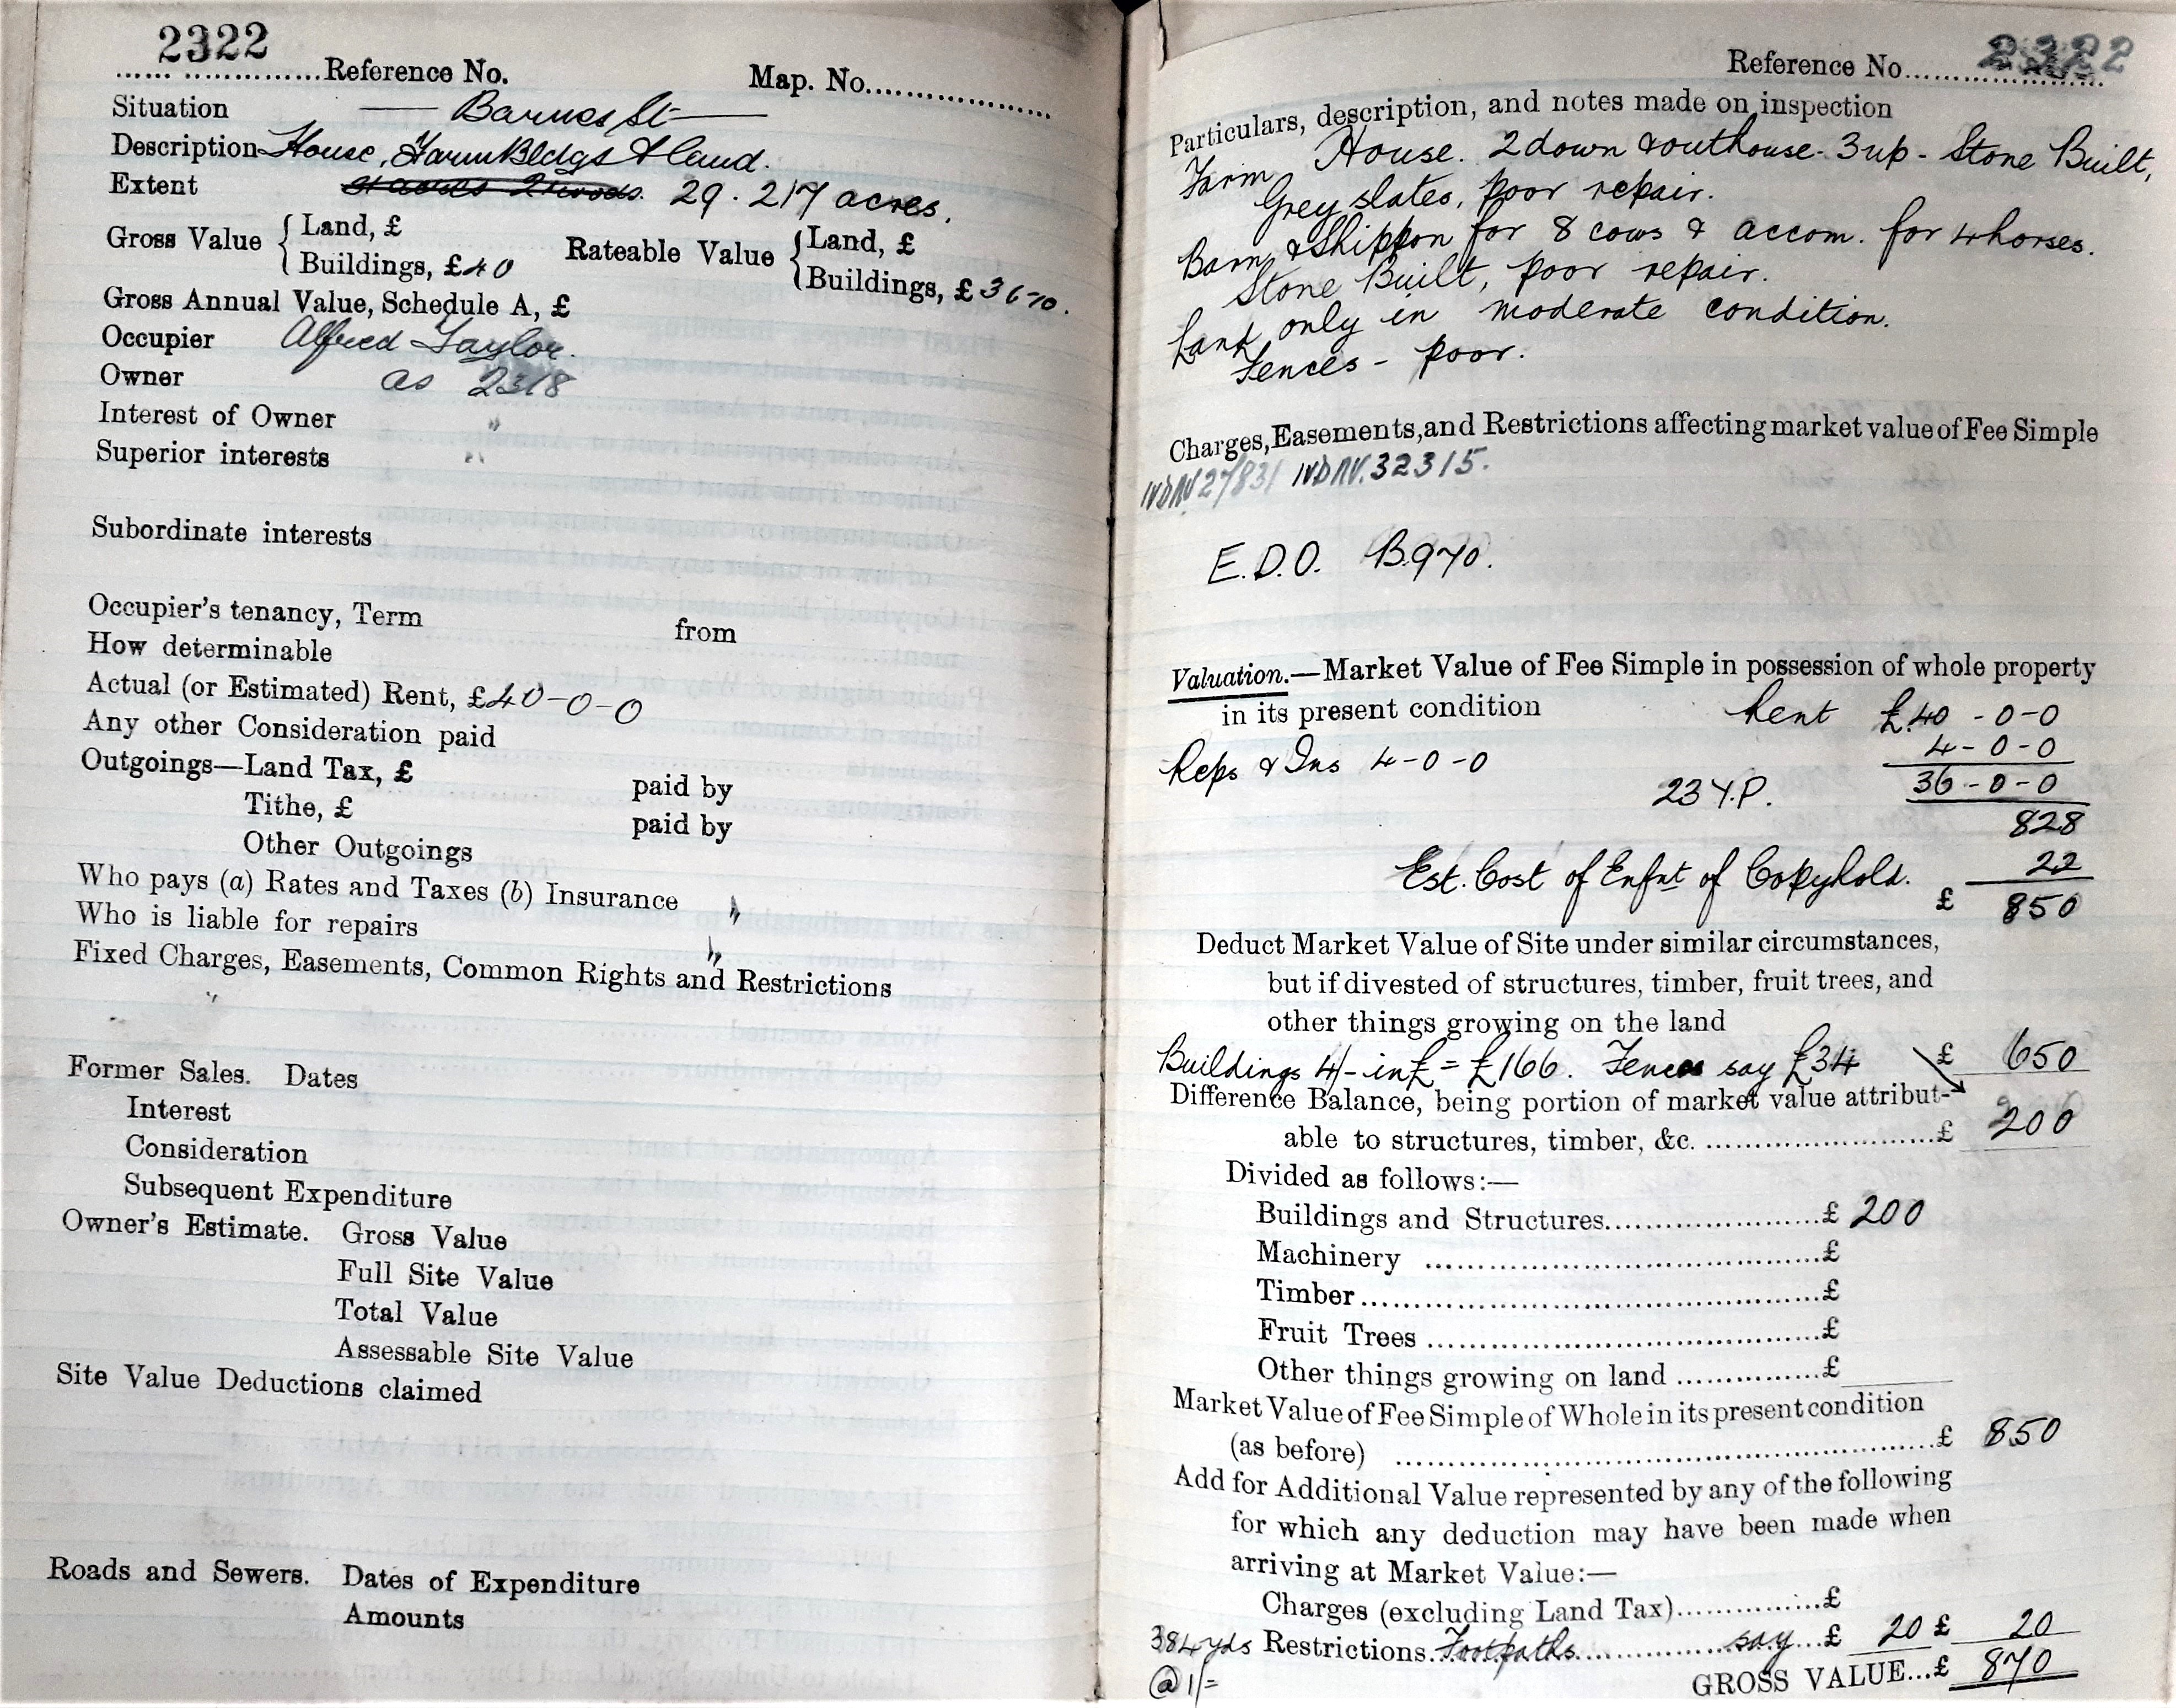 2322
...... ..............Reference No. Map. No...................
Situation — Barnes St —
Description House, Farm Bldgs & land.
Extent 29.217 acres.
Gross Value { Land, £ Rateable Value { Land, £
Buildings, £40 Buildings, £36-10.
Gross Annual Value, Schedule A, £
Occupier Alfred Taylor.
Owner as 2318
Interest of Owner "
Superior interests "
Subordinate interests
Occupier's tenancy, Term from
How determinable
Actual (or Estimated) Rent, £40-0-0
Any other Consideration paid
Outgoings—Land Tax, £ paid by
Tithe, £ paid by
Other Outgoings
Who pays (a) Rates and Taxes (b) Insurance "
Who is liable for repairs "
Fixed Charges, Easements, Common Rights and Restrictions
"
Former Sales. Dates
Interest
Consideration
Subsequent Expenditure
Owner's Estimate. Gross Value
Full Site Value
Total Value
Assessable Site Value
Site Value Deductions claimed
Roads and Sewers. Dates of Expenditure
Amounts
Reference No. 2322
Particulars, description, and notes made on inspection
Farm House. 2 down & outhouse - 3 up - Stone Built,
Grey slates, poor repair.
Barn & Shippon for 8 cows & accom. for 4 horses.
Stone Built, poor repair.
Land only in moderate condition.
Fences - poor.
Charges, Easements, and Restrictions affecting market value of Fee Simple
IVD NV 27831 IVD NV. 32315.
E.D.O. B.970.
Valuation.—Market Value of Fee Simple in possession of whole property
in its present condition Rent £40-0-0
Reps & Ins 4-0-0 4-0-0
23 Y.P. 36-0-0
828
Est. Cost of Enfnt of Copyhold. 22
£ 850
Deduct Market Value of Site under similar circumstances,
but if divested of structures, timber, fruit trees, and
other things growing on the land
Buildings 4/- in £ = £166. Fences say £34 £ 650
Difference Balance, being portion of market value attribut-
able to structures, timber, &c. ..............................£ 200
Divided as follows:—
Buildings and Structures............................£ 200
Machinery ..................................................£
Timber..........................................................£
Fruit Trees ..................................................£
Other things growing on land ................£
Market Value of Fee Simple of Whole in its present condition
(as before) ..............................................................£ 850
Add for Additional Value represented by any of the following
for which any deduction may have been made when
arriving at Market Value:—
Charges (excluding Land Tax)................£
384 yds Restrictions. Footpaths say £ 20 £ 20
@ 1/= GROSS VALUE...£ 870